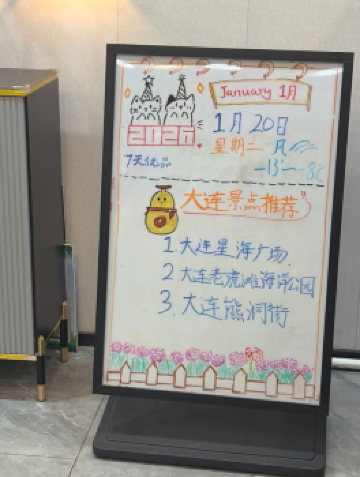 January 1月
2026
1月20日
星期二 风
-13°--8℃
7天优品
大连景点推荐
1.大连星海广场.
2.大连老虎滩海洋公园
3.大连熊洞街